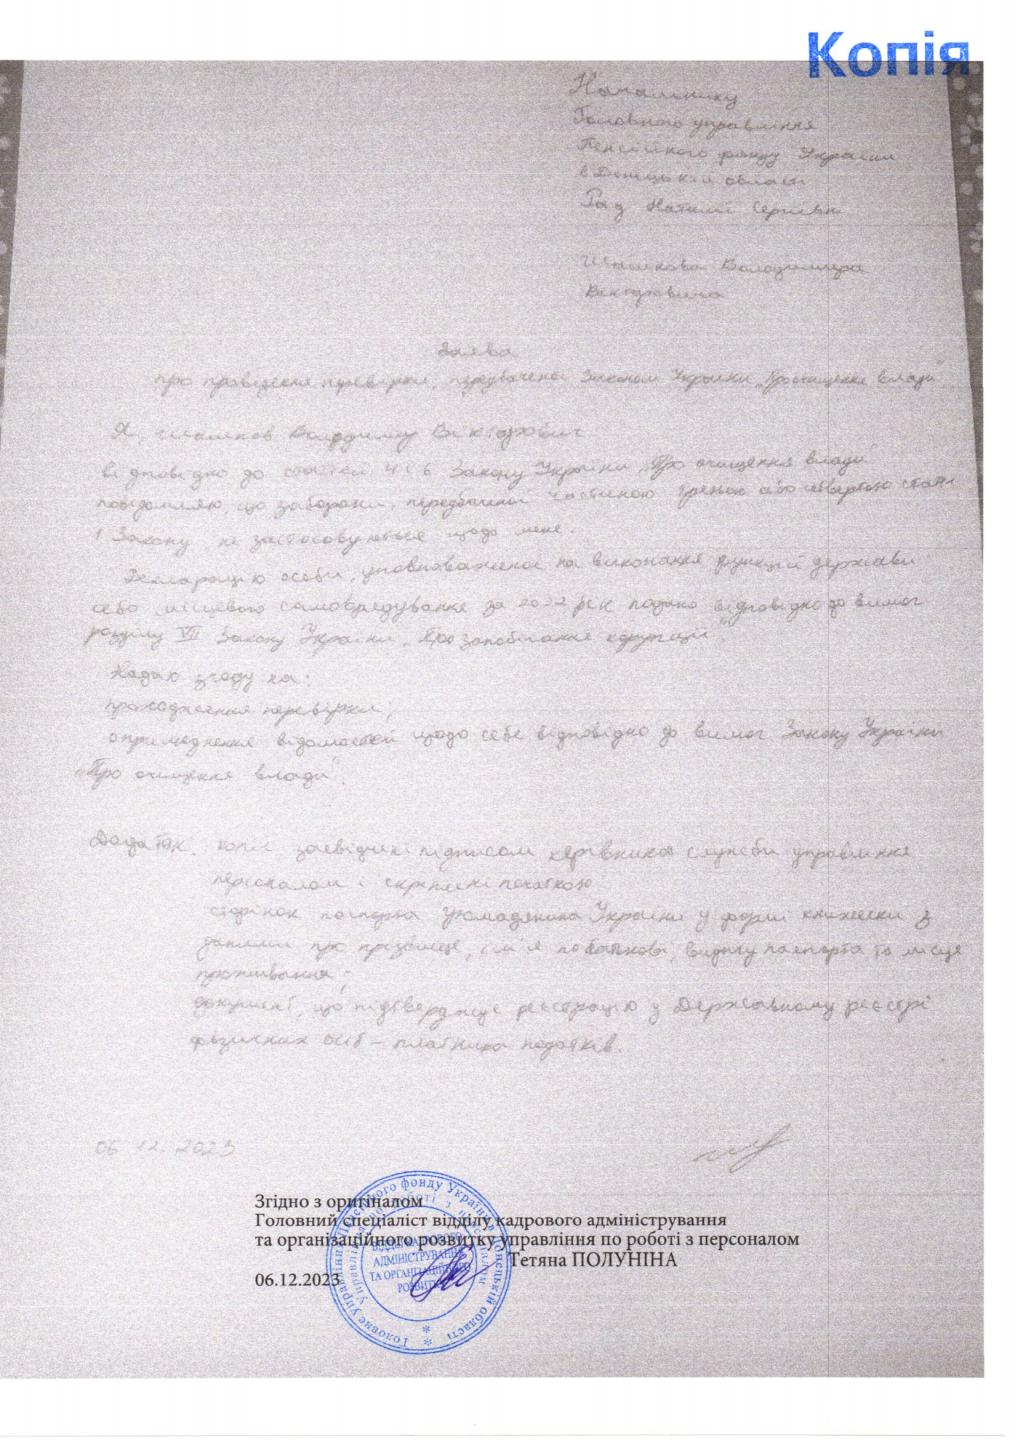 Копія
Начальнику
Головного управління
Пенсійного фонду України
в Донецькій області
Рад Наталії Сергіївні
Володимира
Вікторовича
Заява
про проведення перевірки, передбаченої Законом України „Про очищення влади"
Я, Володимир Вікторович
відповідно до статей 4 і 6 Закону України „Про очищення влади"
повідомляю, що заборони, передбачені частиною третьою або четвертою статті
1 Закону не застосовуються щодо мене.
Декларацію особи, уповноваженої на виконання функцій держави
або місцевого самоврядування за 2022 рік подано відповідно до вимог
розділу VII Закону України „Про запобігання корупції".
Надаю згоду на:
проходження перевірки;
оприлюднення відомостей щодо себе відповідно до вимог Закону України
„Про очищення влади".
Додаток. копії, засвідчені підписом керівника служби управління
персоналом і скріплені печаткою
сторінок паспорта громадянина України у формі книжечки з
даними про прізвище, ім'я по батькові, видачу паспорта та місце
проживання;
документ, що підтверджує реєстрацію у Державному реєстрі
фізичних осіб – платника податків.
06.12.2023
Згідно з оригіналом
Головний спеціаліст відділу кадрового адміністрування
та організаційного розвитку управління по роботі з персоналом
Тетяна ПОЛУНІНА
06.12.2023
Головне управління Пенсійного фонду України в Донецькій області
Управління по роботі з персоналом
ВІДДІЛ КАДРОВОГО
АДМІНІСТРУВАННЯ
ТА ОРГАНІЗАЦІЙНОГО
РОЗВИТКУ